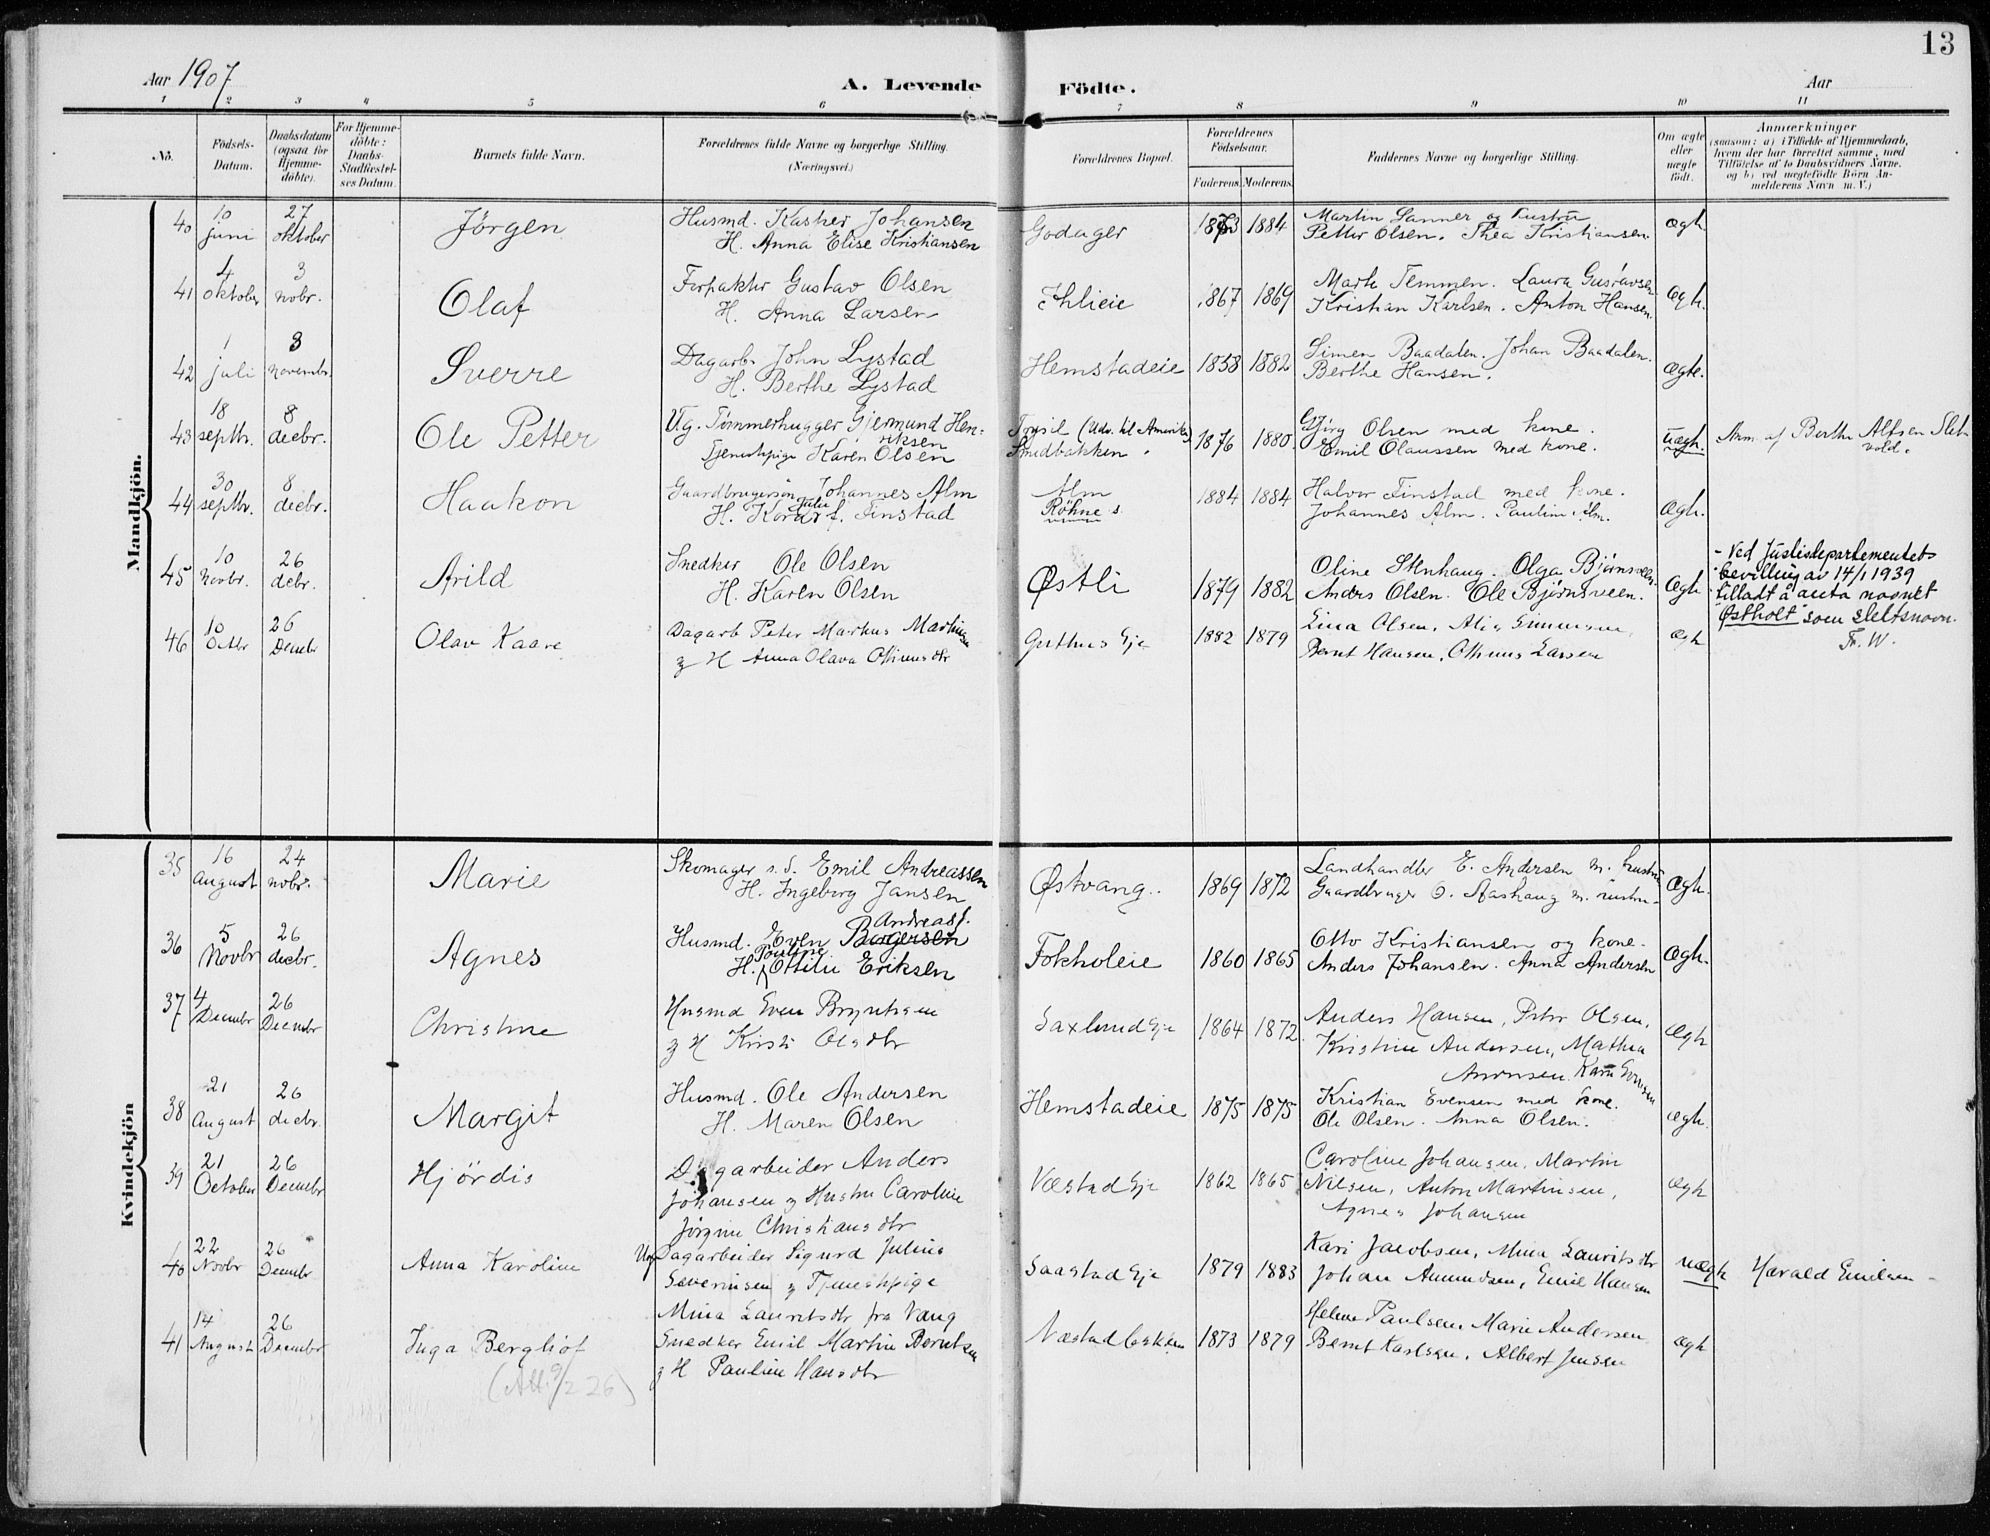 13
Aar 1907
A. Levende Födte.
Aar
1 2 3 4 5 6 7 8 9 10 11
No.
Födsels-Datum.
Daabsdatum (ogsaa for Hjemme-döbte).
For Hjemme-döbte: Daabs-Stadfæstel-ses Datum.
Barnets fulde Navn.
Forældrenes fulde Navne og borgerlige Stilling.
(Næringsvei.)
Forældrenes Bopæl.
Forældrenes Födselsaar.
Faderens. Moderens.
Faddernes Navne og borgerlige Stilling.
Om ægte eller uægte födt.
Anmærkninger
(saasom: a) i Tilfælde af Hjemmedaab, hvem der har forrettet samme, med Tilföielse af to Daabsvidners Navne, og b) ved uægtefödte Börn An-melderens Navn m. V.)
Mandkjön.
40 10 juni 27 oktober Jørgen Husmd. Kasper Johansen
H. Anna Elise Kristiansen
Godager 1873 1884 Martin Sanner og hustru
Petter Olsen. Thea Kristiansen. Ægh.
41 4 oktober 3 nobr. Olaf Forpakter Gustav Olsen
H. Anna Larsen
Ihlieie 1867 1869 Marte Temmen. Laura Gustavsen
Kristian Karlsen. Anton Hansen. Ægh.
42 1 juli 3 novembr. Sverre Dagarb. John Lystad
H. Berthe Lystad
Hemstadeie 1858 1882 Simen Baadalen. Johan Baadalen.
Berthe Hansen. Ægte.
43 18 septbr. 8 decbr. Ole Petter Ug. Tømmerhugger Gjermund Hen-
riksen
Tjenestepige Karen Olsen
Trysil (Udv. til Amerika)
Smedbakken. 1876 1880. Gjörg Olsen med kone.
Emil Olaussen med kone. Uægh. Anm. af Berthe Alfsen Slet-
vold.
44 30 septbr. 8 decbr. Haakon Gaardbrugersøn Johannes Alm
H. Kora Julie f. Finstad
Alm
Röhne s. 1884 1884 Halvor Finstad med kone.
Johannes Alm. Pauline Alm. Ægh.
45 10 Novbr. 26 decbr. Arild Snedker Ole Olsen
H. Karen Olsen
Østli 1879 1882 Oline Stenhaug. Olga Bjørnsveen.
Anders Olsen. Ole Bjørnsveen. Ægh
- Ved Justisdepartementets
bevilling av 14/1 1939
tilladt å anta navnet
"Østholt" som slektsnavn.
Fr. W.
46 10 Octbr 26 Decmbr Olav Kaare Dagarb Peter Markus Martinsen
og H Anna Olava Othinusdtr
Guthus Eje 1882 1879 Lina Olsen,
Bernt Hansen, Othinus Larsen ægh
Kvindekjön
35 16 August 24 nobr. Marie Skomager s.d. Emil Andreassen
H. Ingeborg Jansen
Østvang. 1869 1872 Landhandler E. Andersen m. hustru
Gaardbruger O. Aashaug m. hustru Ægh.
36 5 Novbr 26 decbr. Agnes Husmd. Even Borgersen Andreasf.
H. Pauline Ottilie Eriksen
Fokholeie 1860 1865 Otto Kristiansen og kone.
Anders Johansen. Anna Andersen Ægh.
37 4 Decmbr 26 Decmbr Christine Husmd Even Bryntesen
og H Kirsti Olsdtr
Saxlund Eje 1864 1872. Anders Hansen, Peter Olsen,
Kristine Andersen, Mathea
Karen Evensen Ægh
38 21 August 26 decbr. Margit Husmd. Ole Andersen
H. Maren Olsen
Hemstadeie 1875 1875 Kristian Evensen med kone.
Ole Olsen. Anna Olsen. Ægh.
39 21 October 26 Decmbr Hjördis Dagarbeider Anders
Johansen og Hustru Caroline
Jørgine Christiansdtr
Væstad Eje 1862 1865 Caroline Johansen, Martin
Nilsen, Anton Martinsen,
Agnes Johansen Ægh
40 22 Novbr 26 Decmbr Anna Karoline Ug. Dagarbeider Sigurd Julius
Severinsen og Tjenestepige
Mina Lauritsdtr fra Vang
Saastad Eje 1879 1883 Kari Jacobsen, Mina Lauritsdtr
Johan Amundsen, Emil Hansen uægh Harald Emilsen
41 14 August 26 Decmbr Inga Bergliot
(Att. 9/2 26)
Snedker Emil Martin Berntsen
og H Pauline Hansdtr
Næstadbakken 1873 1879 Helene Paulsen, Marie Andersen
Bernt Karlsen, Albert Jensen ægh